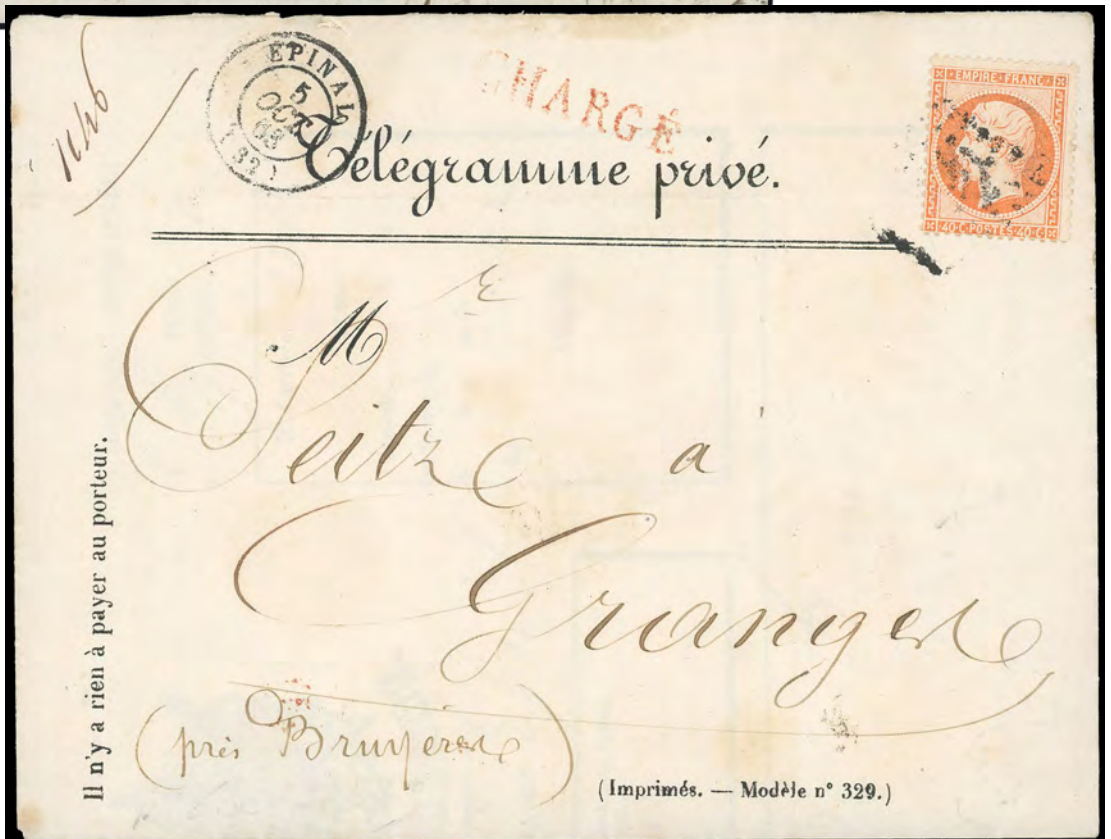 1146
EPINAL
5
OCT
68
CHARGÉ
EMPIRE FRANC
40 C POSTES 40 C
Télégramme privé.
M r
Seitz à
Granges
(près Bruyères)
Il n'y a rien à payer au porteur.
(Imprimés. — Modèle n° 329.)